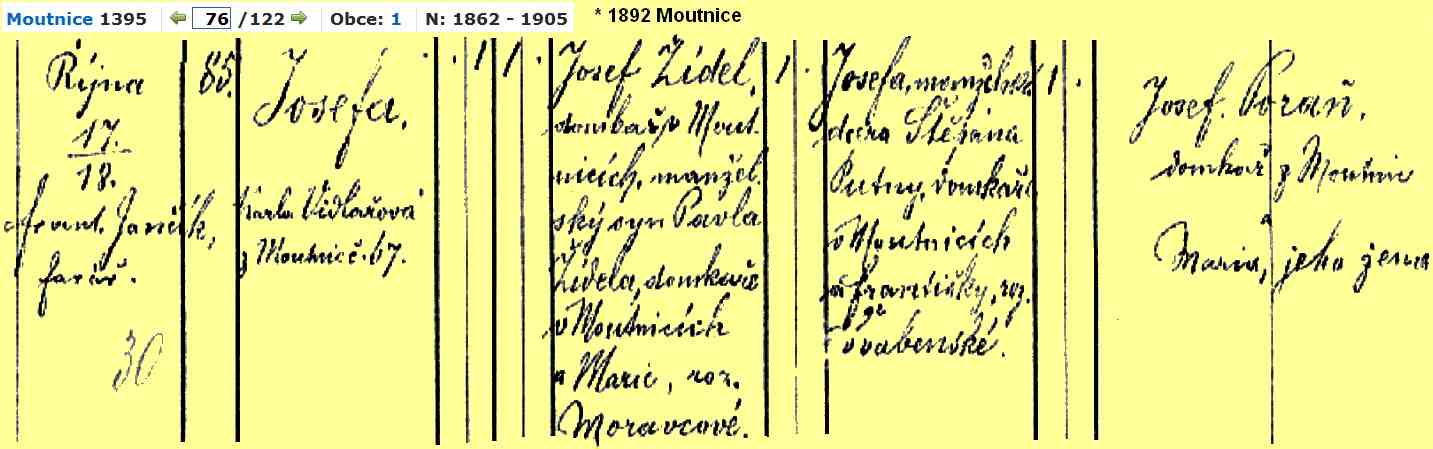 Moutnice 1395 76 /122 Obce: 1 N: 1862 - 1905 * 1892 Moutnice
Října
17.
18.
Frant. Jančík,
farář.
30
85.
Josefa.
Karla Vidlařová
z Moutnic č. 67.
. 1 1 .
Josef Židel,
domkař v Mout-
nicích, manžel-
ský syn Pavla
Židela, domkaře
v Moutnicích
a Marie, roz.
Moravcové.
1 .
Josefa, manželská
dcera Štěpána
Putny, domkaře
v Moutnicích
a Františky, roz.
Švábenské.
1 .
Josef Poraň,
domkař z Moutnic
a
Maria, jeho žena